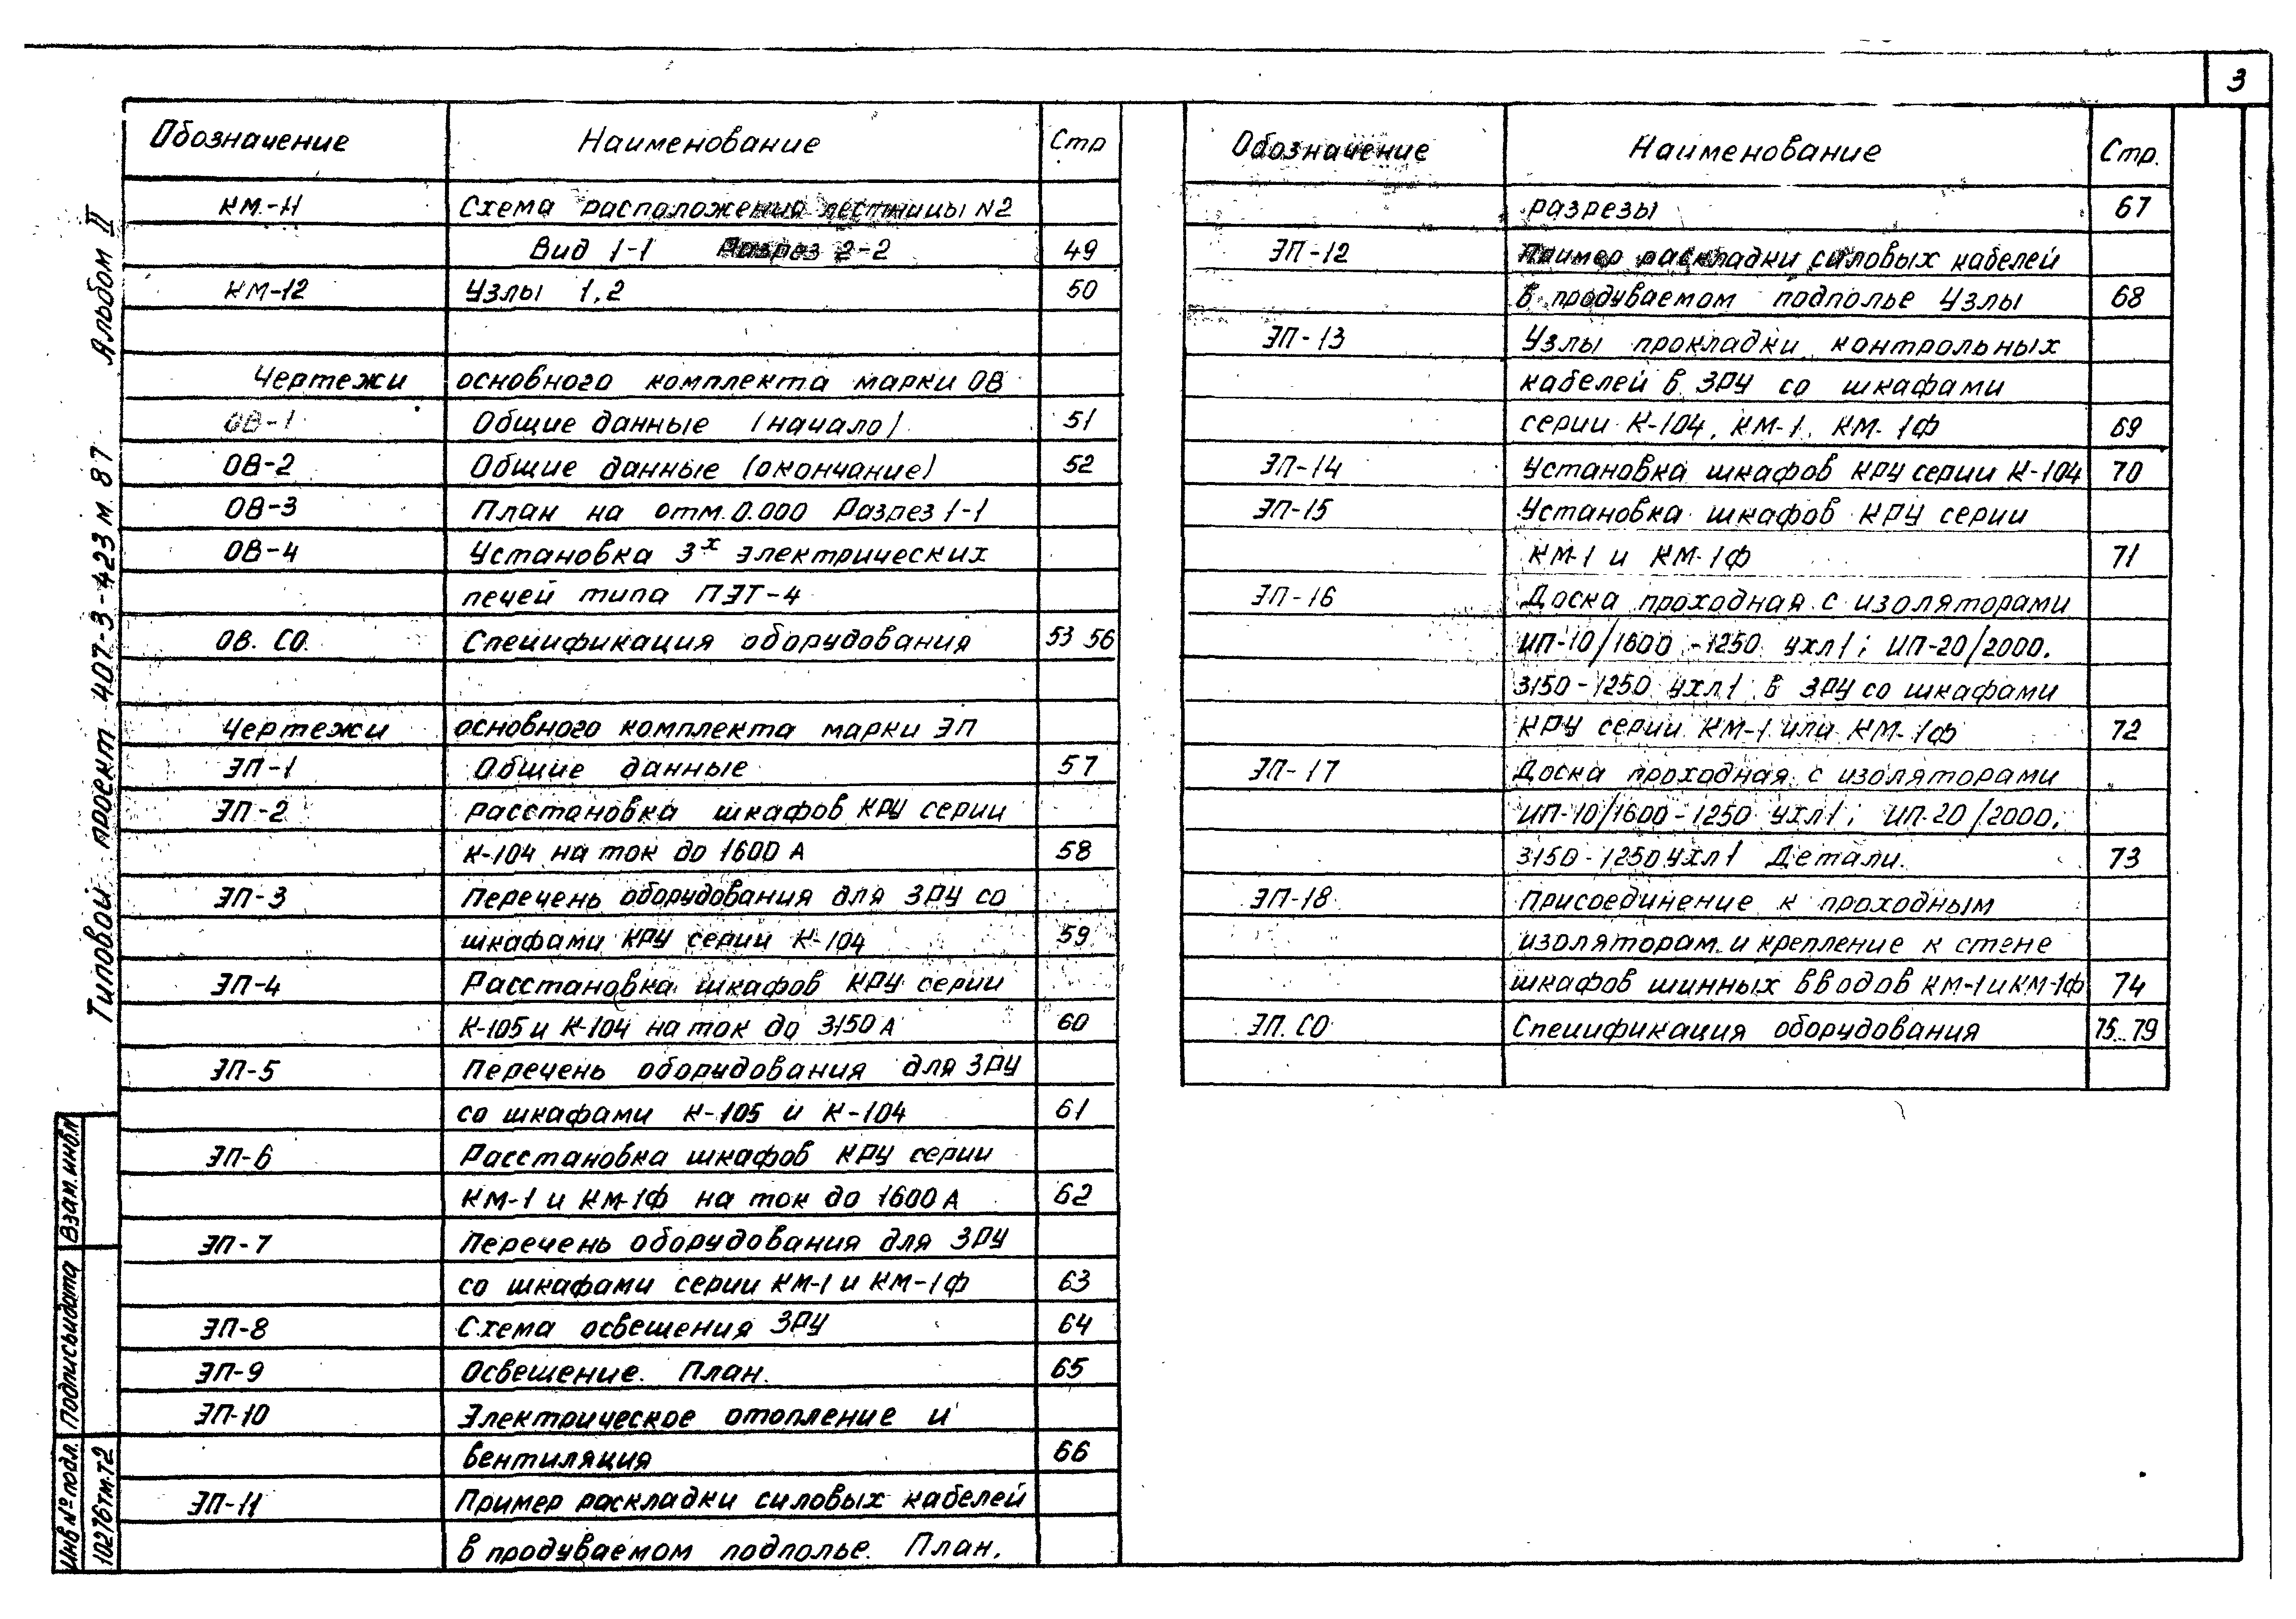 3
Типовой проект 407-3-423 м. 87 Альбом II
Обозначение Наименование Стр
КМ-11 Схема расположения лестницы N2
Вид 1-1 Разрез 2-2 49
КМ-12 Узлы 1,2 50
Чертежи основного комплекта марки ОВ
ОВ-1 Общие данные (начало) 51
ОВ-2 Общие данные (окончание) 52
ОВ-3 План на отм. 0.000 Разрез 1-1
ОВ-4 Установка 3х электрических
печей типа ПЭТ-4
ОВ. СО. Спецификация оборудования 53 56
Чертежи основного комплекта марки ЭП
ЭП-1 Общие данные 57
ЭП-2 Расстановка шкафов КРУ серии
К-104 на ток до 1600 А 58
ЭП-3 Перечень оборудования для ЗРУ со
шкафами КРУ серии К-104 59
ЭП-4 Расстановка шкафов КРУ серии
К-105 и К-104 на ток до 3150 А 60
ЭП-5 Перечень оборудования для ЗРУ
со шкафами К-105 и К-104 61
ЭП-6 Расстановка шкафов КРУ серии
КМ-1 и КМ-1Ф на ток до 1600 А 62
ЭП-7 Перечень оборудования для ЗРУ
со шкафами серии КМ-1 и КМ-1Ф 63
ЭП-8 Схема освещения ЗРУ 64
ЭП-9 Освещение. План. 65
ЭП-10 Электрическое отопление и
вентиляция 66
ЭП-11 Пример раскладки силовых кабелей
в продуваемом подполье. План,
Обозначение Наименование Стр.
разрезы 67
ЭП-12 Пример раскладки силовых кабелей
в продуваемом подполье Узлы 68
ЭП-13 Узлы прокладки контрольных
кабелей в ЗРУ со шкафами
серии К-104, КМ-1, КМ-1Ф 69
ЭП-14 Установка шкафов КРУ серии К-104 70
ЭП-15 Установка шкафов КРУ серии
КМ-1 и КМ-1Ф 71
ЭП-16 Доска проходная с изоляторами
ИП-10/1600-1250 УХЛ1; ИП-20/2000,
3150-1250 УХЛ1 в ЗРУ со шкафами
КРУ серии КМ-1 или КМ-1Ф 72
ЭП-17 Доска проходная с изоляторами
ИП-10/1600-1250 УХЛ1; ИП-20/2000,
3150-1250 УХЛ1 Детали. 73
ЭП-18 Присоединение к проходным
изоляторам и крепление к стене
шкафов шинных вводов КМ-1 и КМ-1Ф 74
ЭП. СО Спецификация оборудования 75...79
Взам. инв.№
Подпись и дата
Инв № подл.
10276тм.т2